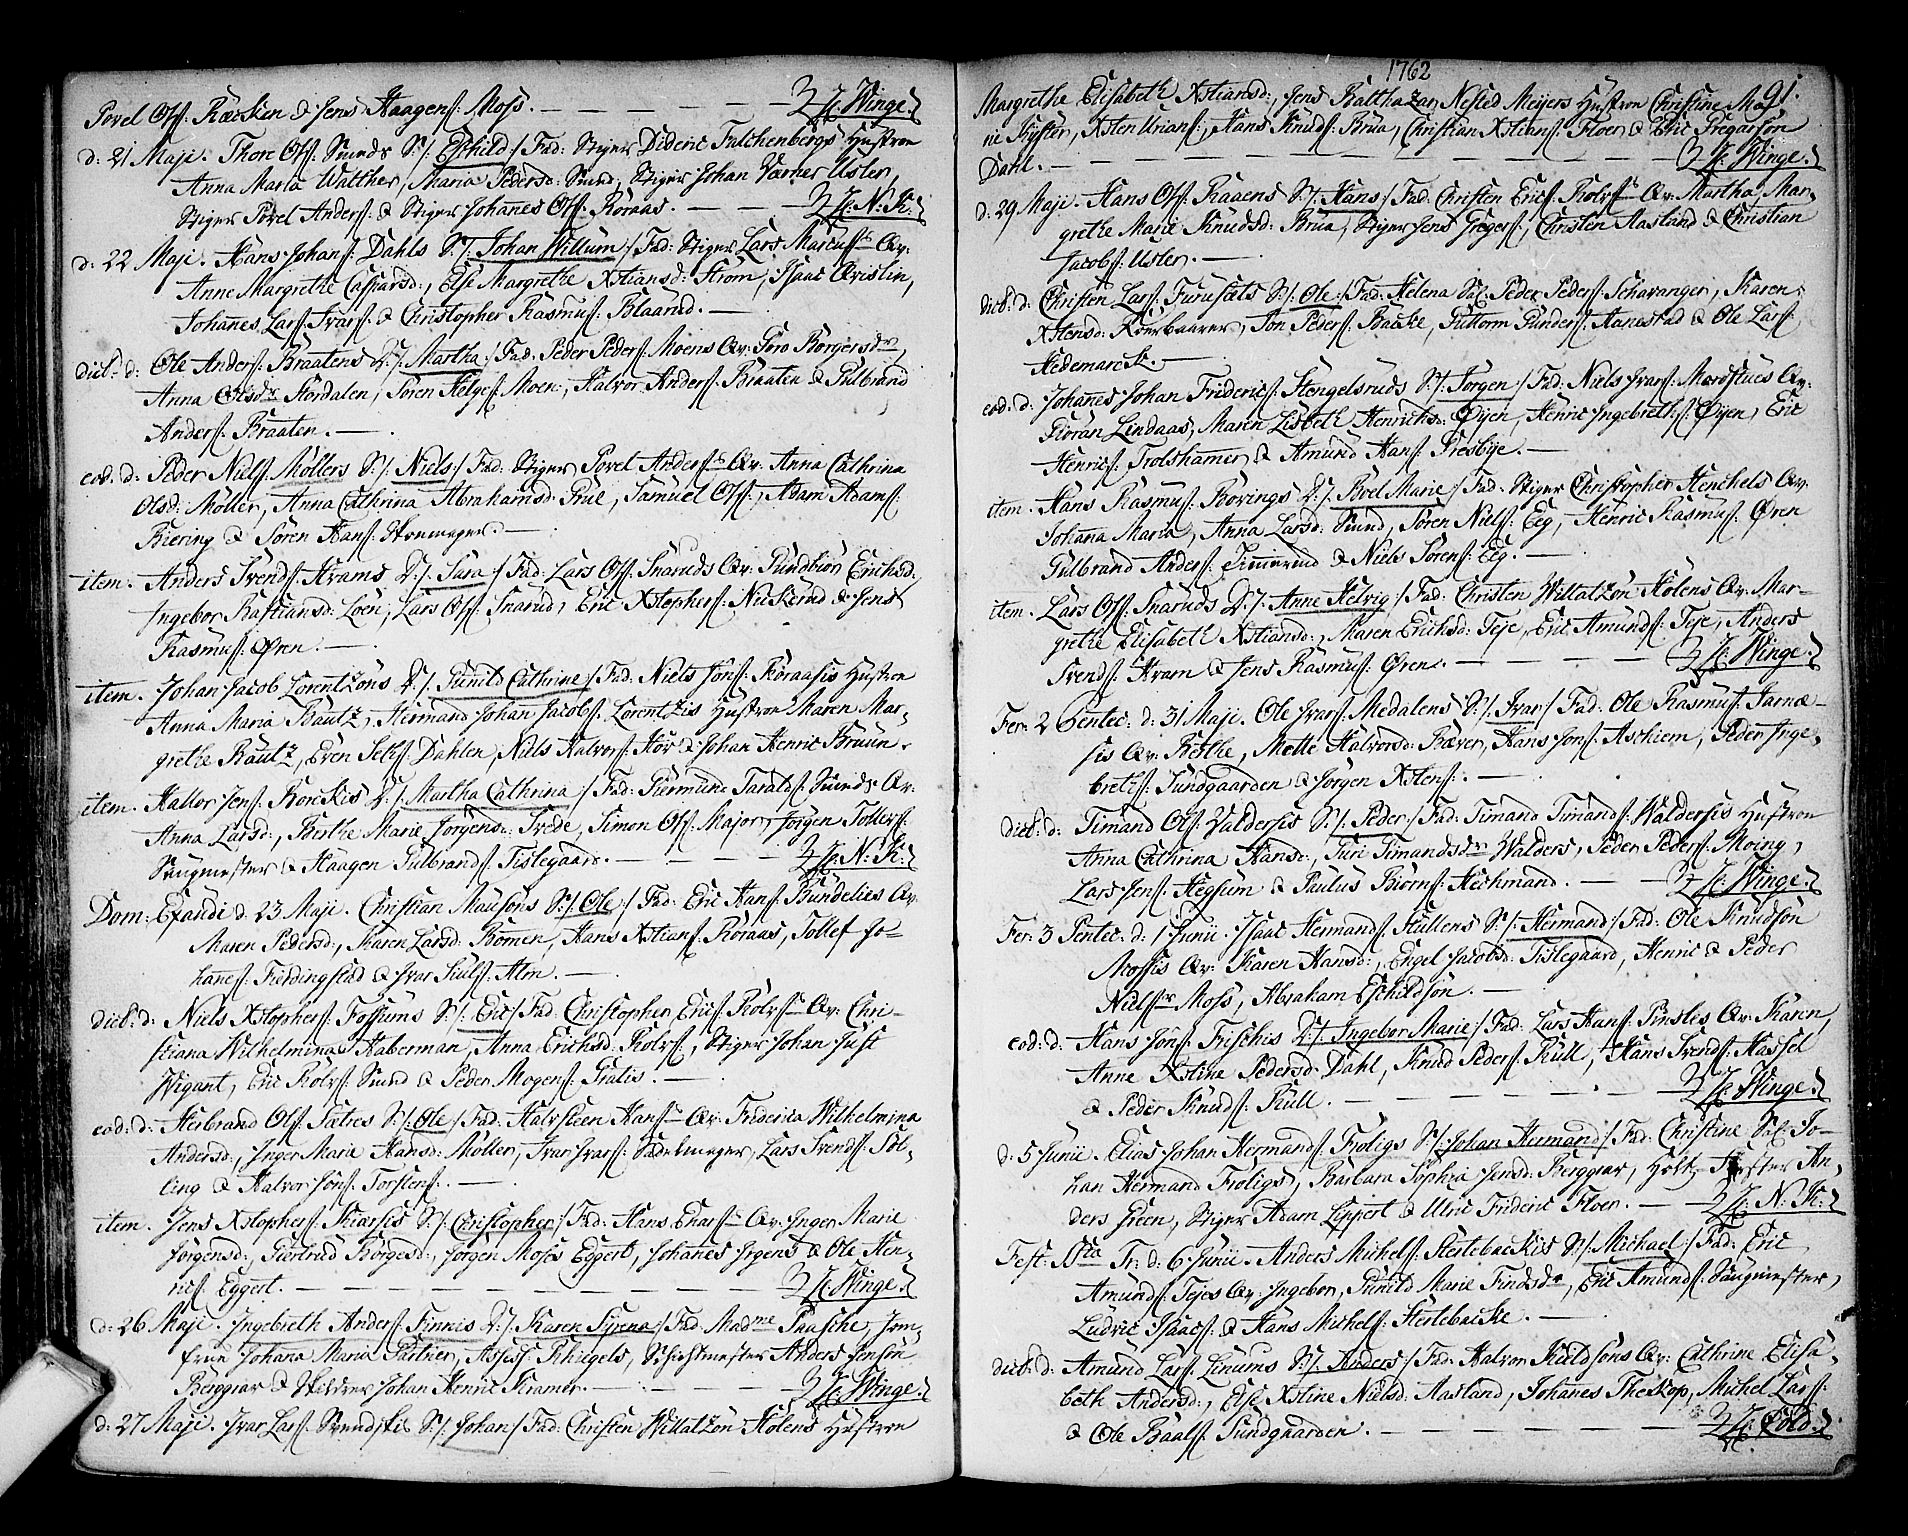 Povel Olss: Ræcken & Jens Haagenss: Moss. — H: Winge.
d: 21 Maji. Thore Olss: Sunds S./: Eschild:/ Fad: Stiger Dideric Falchenbergs Hustroe
Anna Maria Walther, Maria Pedersd: Sund, Stiger Johan Værner Usler,
Stiger Povel Anderss: & Stiger Johannes Olss: Roraas. — H: N: K:
d: 22 Maji. Hans Johanss: Dahls S./: Johan Willum:/ Fad: Stiger Lars Marcuss: Qv:
Anne Margrethe Casparsd:, Else Margrethe Xstiansd: Strøm, Isaac Qvislin,
Johannes Larss: Ivarss: & Christopher Rasmuss: Blaarud. —
dict: d: Ole Anderss: Braatens D./: Martha:/ Fad: Peder Pederss: Moens Qv: Goro Borgersdr,
Anna Olsdr Stordalen, Søren Helgess: Moen, Halvor Anderss: Braaten & Gulbrand
Anderss: Braaten. —
eod: d: Peder Nielss: Møllers S./: Niels:/ Fad: Stiger Povel Anderss: Qv: Anna Cathrina
Olsd: Møller, Anna Cathrina Abrahamsd: Prûe, Samuel Olss:, Adam Adamss:
Biering & Søren Hanss: Steenmeyer. —
item. Anders Svendss: Hrams D./: Sara:/ Fad: Lars Olss: Snaruds Qv: Gundbiør Erichsd:
Ingebor Bastiansd: Loen, Lars Olss: Snarud, Eric Xstopherss: Niuserud & Jens
Rasmuss: Øren. —
item. Johan Jacob Lorentzons D./: Gunild Cathrine:/ Fad: Niels Jonss: Roraasis Hustroe
Anna Maria Bautz, Hermand Johan Jacobss: Lorentzis Hustroe Maren Mar-
grethe Bautz, Even Selss: Dahlen, Niels Halvorss: Hør & Johan Henric Bruun.
item. Hallor Jenss: Borckis D./: Martha Cathrina:/ Fad: Giermund Taraldss: Sunds Qv:
Anna Larsd:, Berthe Marie Jørgensd: Svede, Simon Olss: Major, Jørgen Tollefss:
Saugmester & Haagen Gulbrandss: Tislegaard. — H: N: K:
Dom: Exaudi d: 23 Maji. Christian Mausons S./: Ole:/ Fad: Eric Hanss: Bûndelies Qv:
Maren Pedersd:, Karen Larsd: Bomen, Hans Xstianss: Roraas, Tollef Jo-
haness: Fieldingstad & Ivar Siulss: Alm. —
dict: d: Niels Xstopherss: Fossums S./: Eric:/ Fad: Christopher Ericss: Rolvss: Qv: Chri-
stiana Wilhelmina Haberman, Anna Erichsd: Rolvss:, Stiger Johan Just
Wigant, Eric Rolvss: Sund & Peder Mogenss: Gratis. —
eod: d: Herbrand Olss: Sætres S./: Ole:/ Fad: Halvsteen Hanss: Qv: Friderica Wilhelmina
Andersd:, Inger Marie Hansd: Møller, Ivar Ivarss: Sadelmager, Lars Svendss: Søl-
ling & Halvor Jonss: Torstenss:. —
item. Jens Xstopherss: Kiarsis S./: Christopher:/ Fad: Hans Enarss: Qv: Inger Marie
Jørgensd:, Giertrud Børgesd:, Jørgen Moses Eggert, Johanes Irgens & Ole Hen-
ricss: Eggert. — H: Winge.
d: 26 Maji. Ingebreth Anderss: Finnis D./: Karen Syrena:/ Fad: Madme Paasche, Jom-
frue Johana Maria Gartner, Assess: Schiegels, Schichtmester Anders Jensøn
Berggrav & Johan Henric Kramer. — H: Winge.
d: 27 Maji. Ivar Larss: S./: Johan:/ Fad: Christen Willatzøn Holens Hustroe
1762
91.
Margrethe Elisabeth Xstiansd:, Jens Balthazar Nested Meyers Hustroe Christine Ma-
rie Gyster, Xsten Urianss:, Hans Knudss: Brua, Christian Xstianss: Floer & Eric Gregarsøn
Dahl. — H: Winge.
d: 29 Maji. Hans Olss: Raaens S./: Hans:/ Fad: Christen Ericss: Rolvss: Qv: Martha, Mar-
grethe Marie Knudsd: Brua, Stiger Jens Gregerss:, Christen Aasland & Christian
Jacobss: Usler. —
dict: d: Christen Larss: Furusæts S./: Ole:/ Fad: Helena Sal: Peder Pederss: Schavanger, Karen
Xstensd:, Jon Pederss: Backe, Guttorm Gunderss: Aanestad & Ole Larss:
Hedemarck. —
eod: d: Johanes Johan Fridericss: Stengelsruds S./: Jørgen:/ Fad: Niels Ivarss: Mordstues Qv:
Goran Lindaas, Maren Lisbeth Henrichsd: Øyen, Henric Ingebrethss: Øyen, Eric
Henricss: Trolshamer & Amund Hanss: Presbye. —
item. Hans Rasmuss: Rovings D./: Boel Marie:/ Fad: Stiger Christopher Henchels Qv:
Johana Maria, Anna Larsd: Sund, Søren Nielss: Eeg, Henric Rasmuss: Øren
Gulbrand Anderss: Simerud & Niels Sørenss: Eeg. —
item. Lars Olss: Snaruds D./: Anne Helvig:/ Fad: Christen Willatzøn Holens Qv: Mar-
grethe Elisabeth Xstiansd:, Maren Erichsd: Teje, Eric Amundss: Teje, Anders
Svendss: Hram & Jens Rasmuss: Øren. — H: Winge.
Fer: 2 Pentec: d: 31 Maji. Ole Ivarss: Medalens S./: Ivar:/ Fad: Ole Rasmuss: Jarnæ-
sis Qv: Berthe, Mette Halvorsd: Bæver, Hans Jonss: Aschiem, Peder Inge-
brethss: Sundgaarden & Jørgen Xstenss:. —
dict: d: Timand Olss: Valdersis S./: Peder:/ Fad: Timand Timandss: Waldersis Hustroe
Anna Cathrina Hansd:, Turi Timandsdr Walders, Peder Pederss: Moing,
Lars Jenss: Hegsum & Paulus Biørnss: Hechmand. — H: Winge.
Fer: 3 Pentec: d: 1 Junii. Isaac Hermandss: Hullens S./: Hermand:/ Fad: Ole Knudsøn
Mossis Qv: Karen Hansd:, Engel Jacobsd: Tislegaard, Henric & Peder
Nielssr Moss, Abraham Eschildsøn. —
eod: d: Hans Jonss: Frischis D./: Ingebor Marie:/ Fad: Lars Hanss: Pinsles Qv: Karen,
Anne Xstine Pedersd: Dahl, Knud Pederss: Kull, Hans Svendss: Hassel
& Peder Knudss: Kull. — H: Winge.
d: 5 Junii. Elias Johan Hermandss: Froligs S./: Johan Hermand:/ Fad: Christine Sal: Jo-
han Hermand Froligs, Barbara Sophia Jensd: Berggrav, Holtz Førster An-
ders Green, Stiger Adam Lippert & Ulric Frideric Floer. — H: N: K:
Fest: SSta Tr: d: 6 Junii. Anders Michelss: Stertebackis S./: Michael:/ Fad: Eric
Amundss: Tejes Qv: Ingebor, Gunild Marie Findsdr, Eric Amundss: Saugmester,
Ludvic Isaacss: & Hans Michelss: Stertebacke. —
dict: d: Amund Larss: Linums S./: Anders:/ Fad: Halvor Kieldsøns Qv: Cathrine Elisa-
beth Andersd:, Else Xstine Nielsd: Aasland, Johanes Theskop, Michel Larss:
& Ole Paalss: Sundgaarden. — H: Cold.